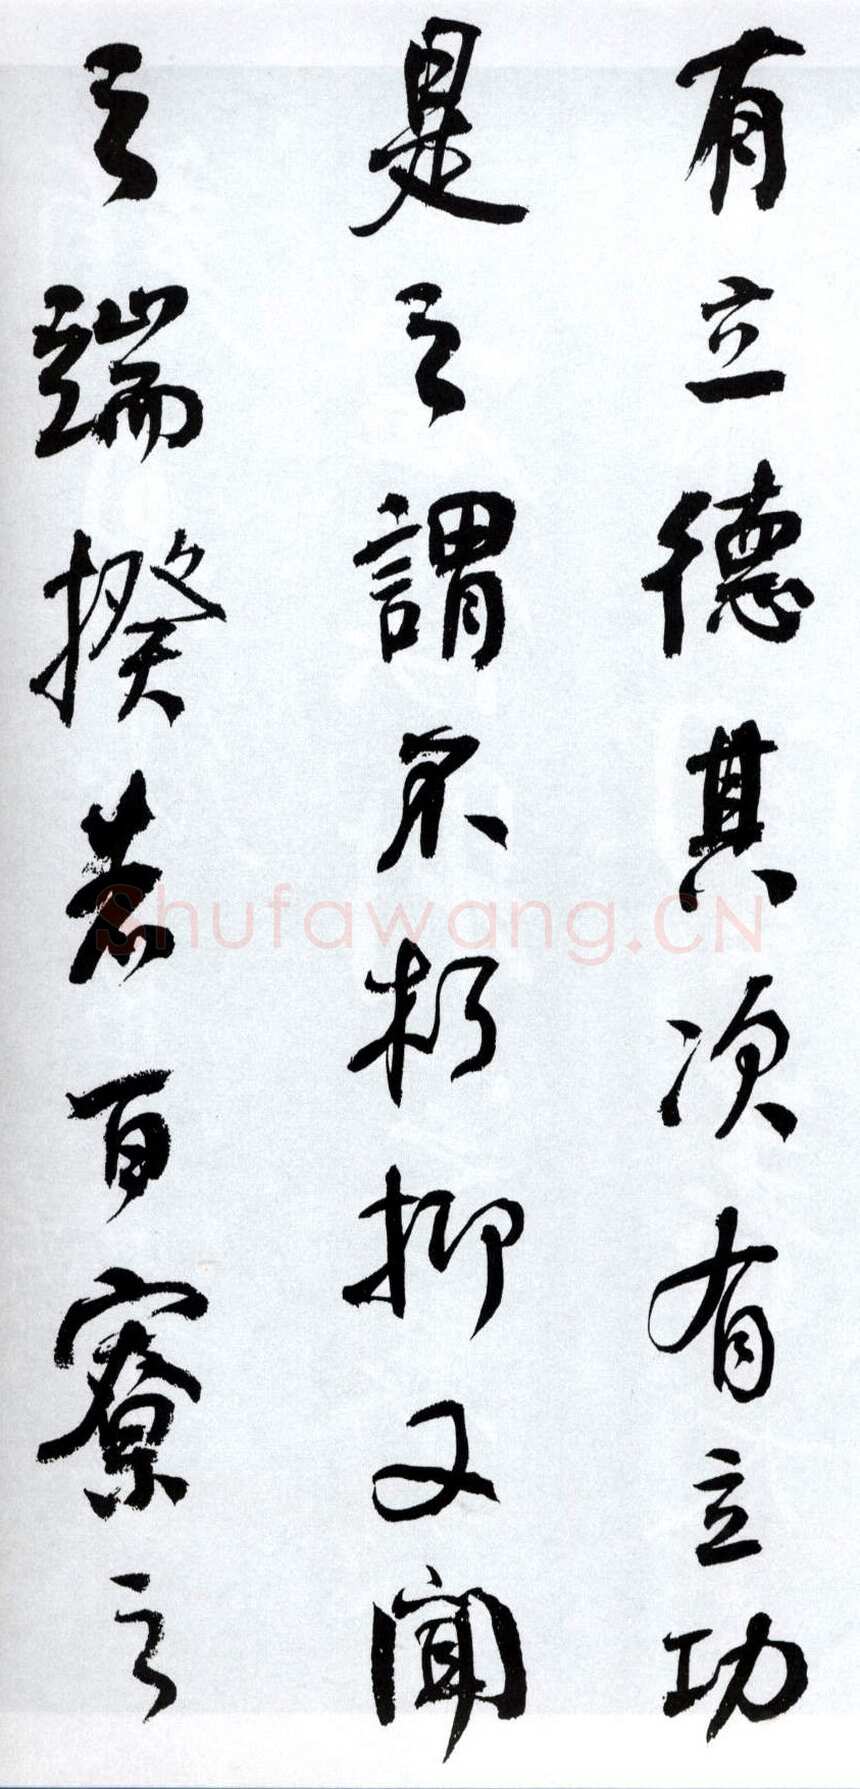 有立德其次有立功
是之謂不朽抑又聞
之端揆者百寮之
Shufawang.CN